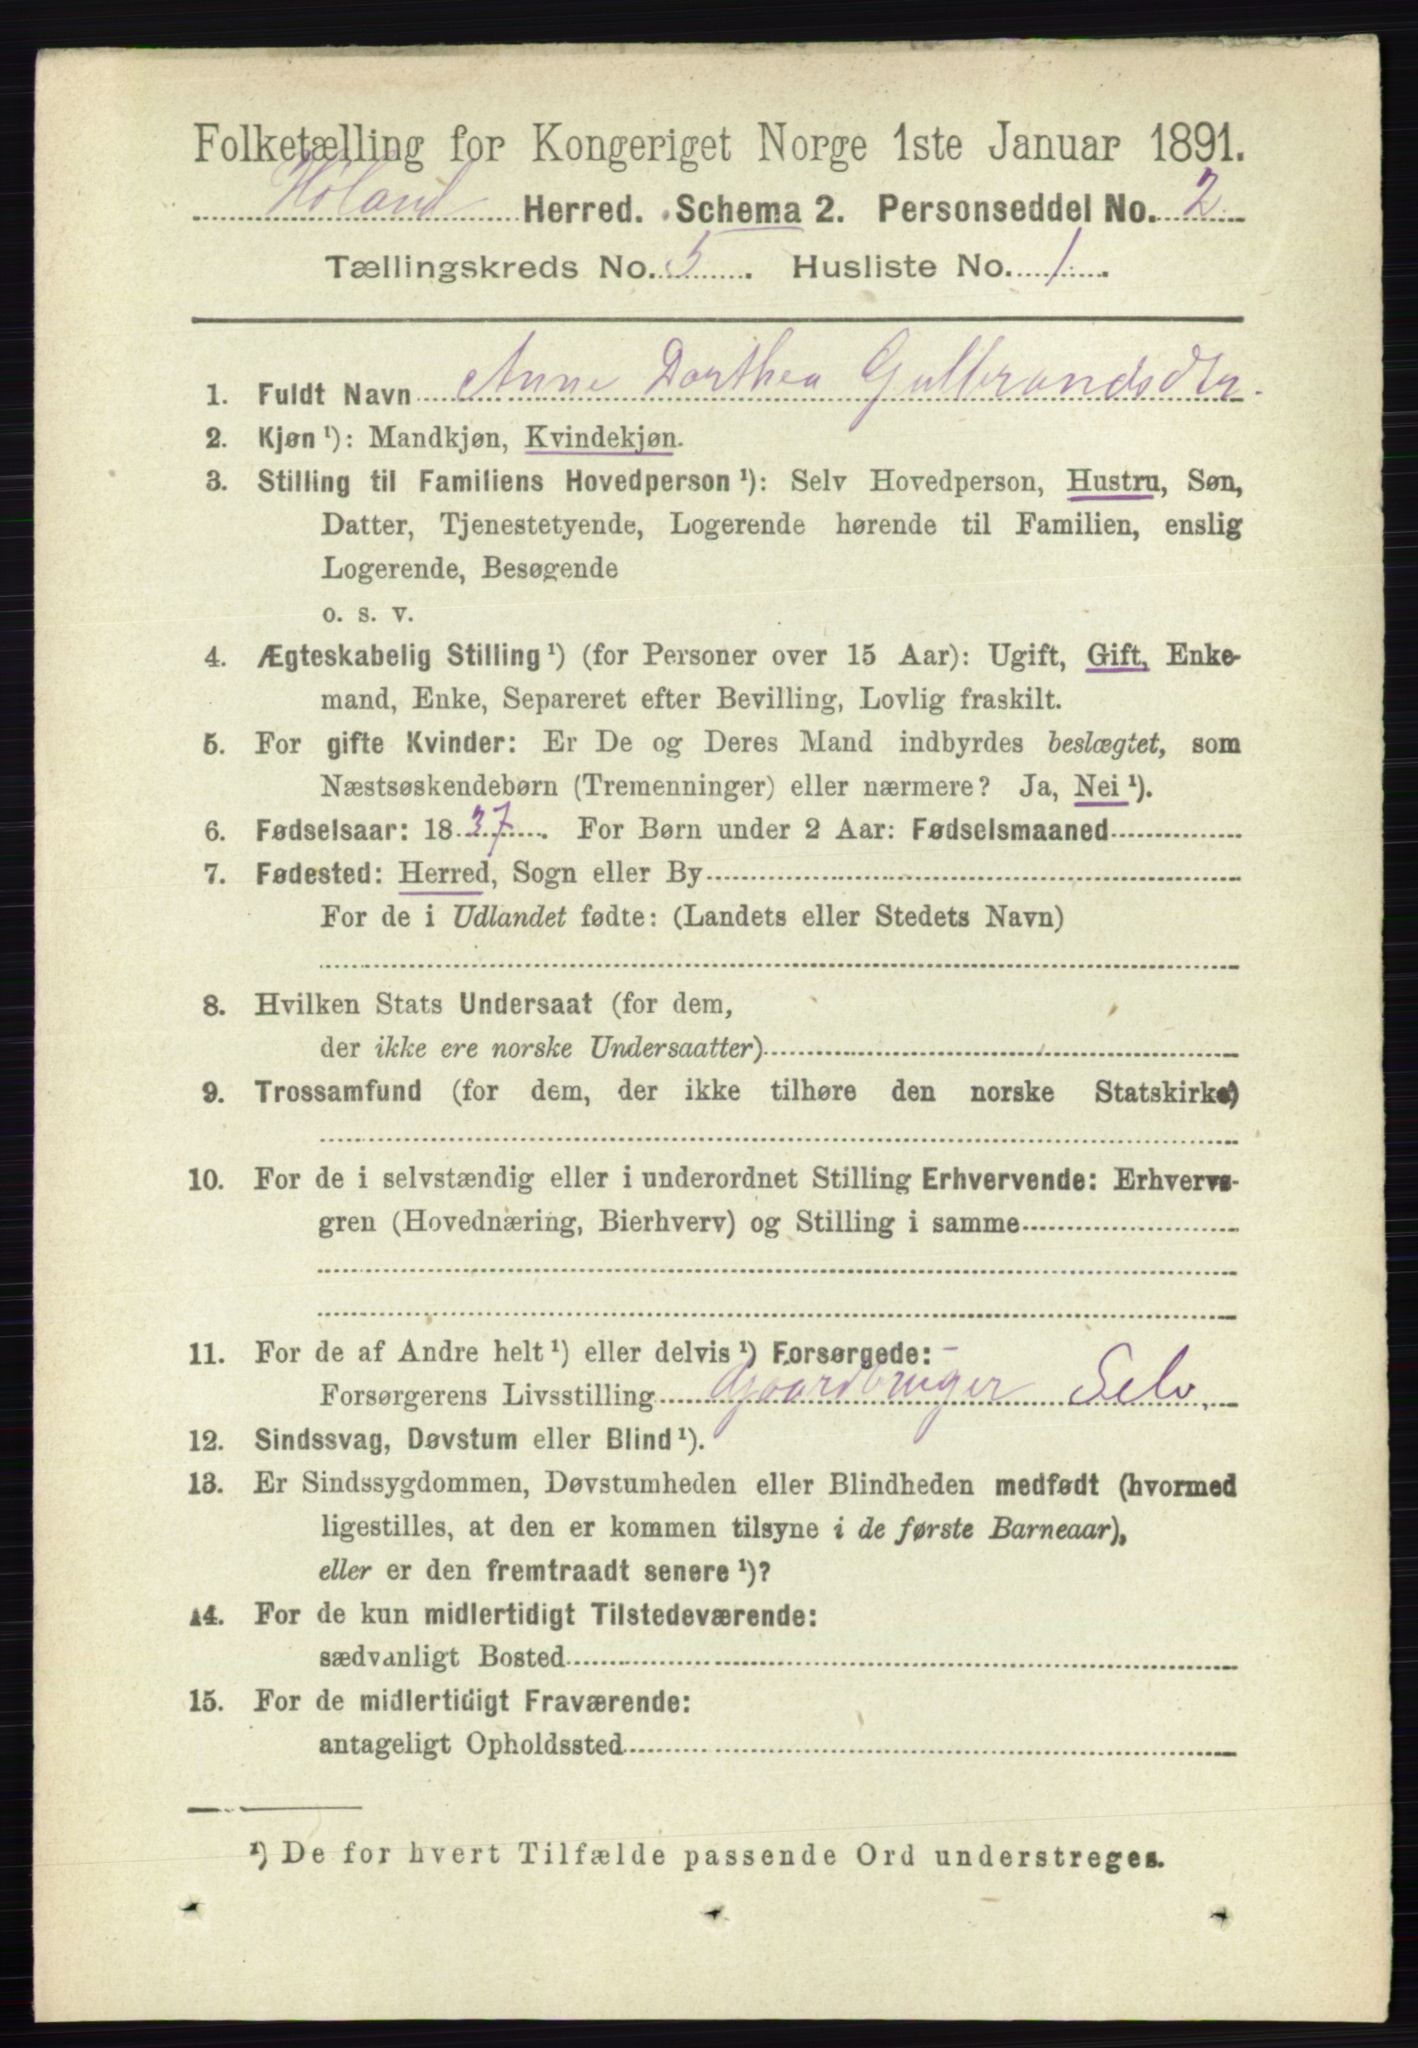 Folketælling for Kongeriget Norge 1ste Januar 1891.
Høland Herred. Schema 2. Personseddel No. 2
Tællingskreds No. 5. Husliste No. 1.
1. Fuldt Navn Anne Dorthea Gulbrandsdtr.
2. Kjøn ¹): Mandkjøn, Kvindekjøn.
3. Stilling til Familiens Hovedperson ¹): Selv Hovedperson, Hustru, Søn,
Datter, Tjenestetyende, Logerende hørende til Familien, enslig
Logerende, Besøgende
o. s. v.
4. Ægteskabelig Stilling ¹) (for Personer over 15 Aar): Ugift, Gift, Enke-
mand, Enke, Separeret efter Bevilling, Lovlig fraskilt.
5. For gifte Kvinder: Er De og Deres Mand indbyrdes beslægtet, som
Næstsøskendebørn (Tremenninger) eller nærmere? Ja, Nei ¹).
6. Fødselsaar: 1837. For Børn under 2 Aar: Fødselsmaaned
7. Fødested: Herred, Sogn eller By
For de i Udlandet fødte: (Landets eller Stedets Navn)
8. Hvilken Stats Undersaat (for dem,
der ikke ere norske Undersaatter)
9. Trossamfund (for dem, der ikke tilhøre den norske Statskirke)
10. For de i selvstændig eller i underordnet Stilling Erhvervende: Erhvervs-
gren (Hovednæring, Bierhverv) og Stilling i samme
11. For de af Andre helt ¹) eller delvis ¹) Forsørgede:
Forsørgerens Livsstilling Gaardbruger Selv.
12. Sindssvag, Døvstum eller Blind ¹).
13. Er Sindssygdommen, Døvstumheden eller Blindheden medfødt (hvormed
ligestilles, at den er kommen tilsyne i de første Barneaar),
eller er den fremtraadt senere ¹)?
14. For de kun midlertidigt Tilstedeværende:
sædvanligt Bosted
15. For de midlertidigt Fraværende:
antageligt Opholdssted
¹) De for hvert Tilfælde passende Ord understreges.